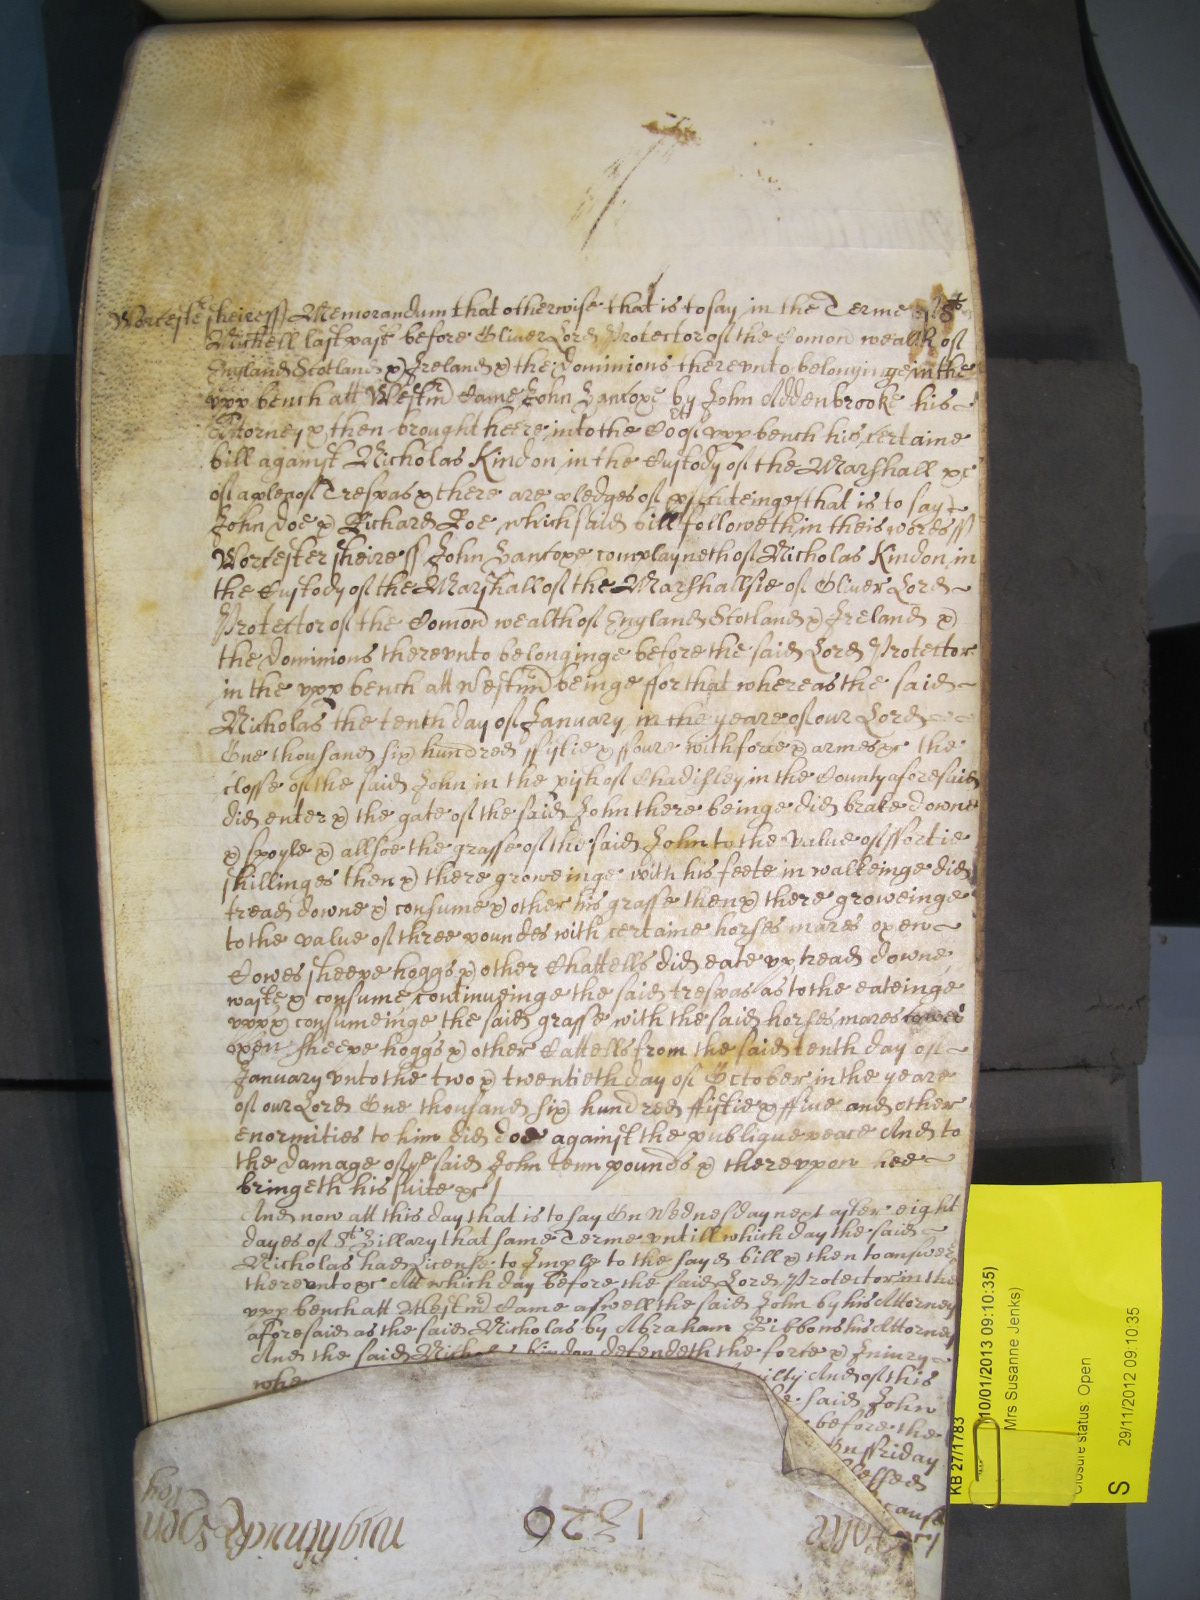 Worcester sheire ss Memorandum that otherwise that is to say in the Terme of St
Michell last past before Oliver Lord Protector of the Comon wealth of
England Scotland & Ireland & the dominions therevnto belonginge in the
vpp bench att Westm Came John Hancoxe by John Addenbrooke his
Attorney & then brought heere into the Cort of vpp bench his certaine
bill against Nicholas Kindon in the Custody of the Marshall &c
of a plea of Trespas & there are pledges of psecuteinge that is to say
John Doe & Richard Roe which said bill followeth in theis wordes ss
Worcester sheire ss John Hancoxe complayneth of Nicholas Kindon in
the Custody of the Marshall of the Marshallsie of Oliver Lord
Protector of the Comon wealth of England Scotland & Ireland &
the dominions therevnto belonginge before the said Lord Protector
in the vpp bench att Westm beinge ffor that whereas the said
Nicholas the tenth day of January in the yeare of our Lord
One thousand six hundred fiftie & ffoure with force & armes &c the
closse of the said John in the pish of Chadisley in the County aforesaid
did enter & the gate of the said John there beinge did brake downe
& spoyle & allsoe the grasse of the said John to the value of ffortie
shillinges then & there groweinge with his feete in walkeinge did
tread downe & consume & other his grasse then & there groweinge
to the value of three poundes with certaine horses mares oxen
Cowes sheepe hoggs & other Chattells did eate vp tread downe
waste & consume continueinge the said trespas as to the eateinge
vpp & consumeinge the said grasse with the said horses mares cowes
oxen sheepe hoggs & other Cattells from the said tenth day of
January vnto the two & twentieth day of October in the yeare
of our Lord One thousand six hundred fiftie & ffiue and other
enormities to him did doe against the publique peace And to
the damage of ye said John tenn pounds & therevpon hee
bringeth his suite &c
And now att this day that is to say On Wednesday next after eight
dayes of St Hillary that same Terme vntill which day the said
Nicholas had License to Imple to the sayd bill & then to answer
therevnto &c Att which day before the said Lord Protector in the
vpp bench att Westm Came aswell the said John by his Attorney
aforesaid as the said Nicholas by Abraham Gibbons his Attorney
And the said Nicholas Kindon defendeth the force & Iniury
whe And of this
said John
before the
On ffriday
blessed
cause
&c
1326
KB 27/1783
10/01/2013 09:10:35)
Mrs Susanne Jenks)
Closure status: Open
S 29/11/2012 09:10:35